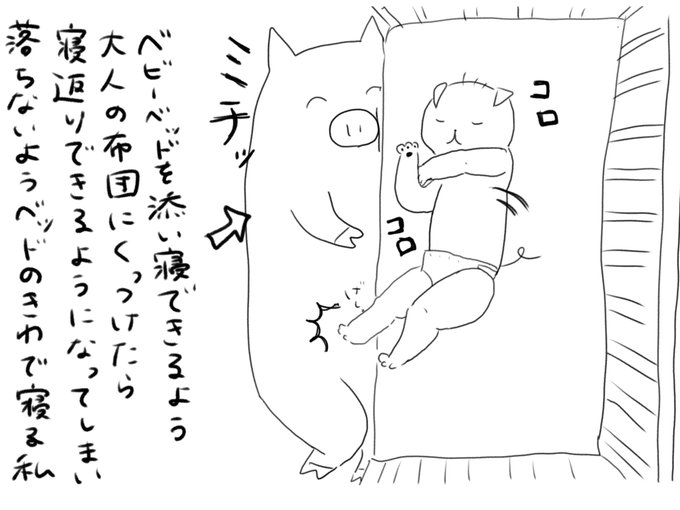 ベビーベッドを添い寝できるよう
大人の布団にくっつけたら
寝返りできるようになってしまい
落ちないようベッドのきわで寝る私
ミチッ
コロ
コロ